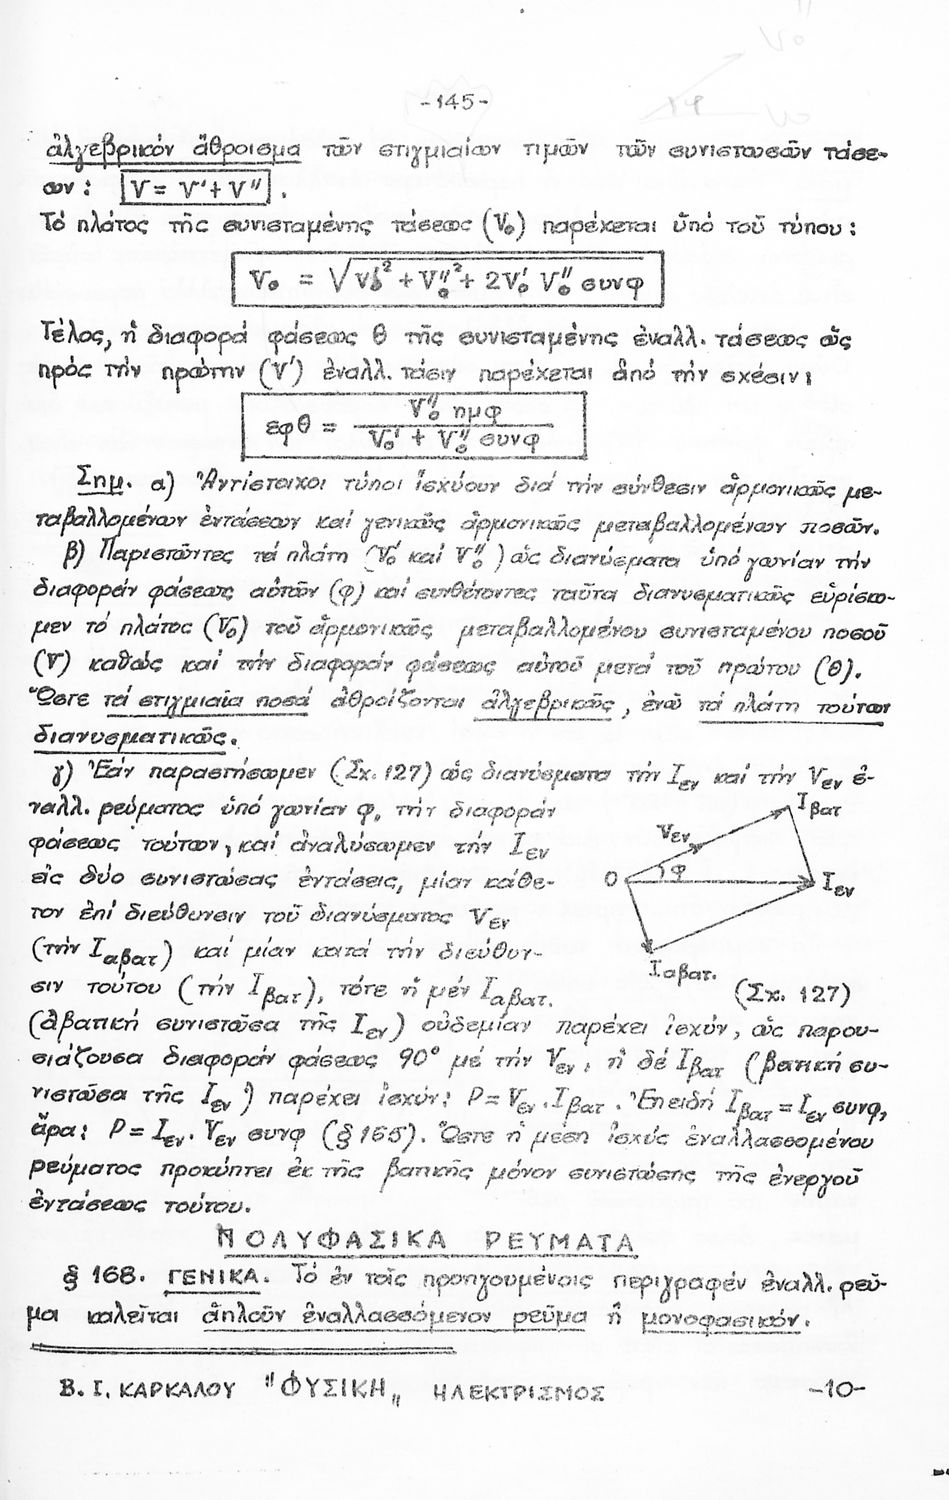 -145-
ἀλγεβρικόν ἄθροισμα τῶν στιγμιαίων τιμῶν τῶν συνιστωσῶν τάσε-
ων: V = V' + V'' .
Τό πλάτος τῆς συνισταμένης τάσεως (V₀) παρέχεται ὑπό τοῦ τύπου:
V₀ = √V₀'² + V₀''² + 2V₀' V₀'' συνφ
Τέλος, ἡ διαφορά φάσεως θ τῆς συνισταμένης ἐναλλ. τάσεως ὡς
πρός τήν πρώτην (V') ἐναλλ. τάσιν παρέχεται ἀπό τήν σχέσιν:
εφθ = V₀'' ημφ / V₀' + V₀'' συνφ
Σημ. α) Ἀντίστοιχοι τύποι ἰσχύουν διά τήν σύνθεσιν ἁρμονικῶς με-
ταβαλλομένων ἐντάσεων καί γενικῶς ἁρμονικῶς μεταβαλλομένων ποσῶν.
β) Παριστῶντες τά πλάτη (V₀' καί V₀'') ὡς διανύσματα ὑπό γωνίαν τήν
διαφοράν φάσεως αὐτῶν (φ) καί συνθέτοντες ταῦτα διανυσματικῶς εὑρίσκο-
μεν τό πλάτος (V₀) τοῦ ἁρμονικῶς μεταβαλλομένου συνισταμένου ποσοῦ
(V) καθώς καί τήν διαφοράν φάσεως αὐτοῦ μετά τοῦ πρώτου (θ).
Ὥστε τά στιγμιαῖα ποσά ἀθροίζονται ἀλγεβρικῶς, ἐνῶ τά πλάτη τούτων
διανυσματικῶς.
γ) Ἐάν παραστήσωμεν (Σχ. 127) ὡς διανύσματα τήν Iεν καί τήν Vεν ἐ-
ναλλ. ρεύματος ὑπό γωνίαν φ, τήν διαφοράν
φάσεως τούτων, καί ἀναλύσωμεν τήν Iεν
εἰς δύο συνιστώσας ἐντάσεις, μίαν κάθε-
τον ἐπί διεύθυνσιν τοῦ διανύσματος Vεν
(τήν Iαβατ) καί μίαν κατά τήν διεύθυν-
σιν τούτου (τήν Iβατ), τότε ἡ μέν Iαβατ.
Iβατ
Vεν
O φ Iεν
Iαβατ.
(Σχ. 127)
(ἀβατική συνιστῶσα τῆς Iεν) οὐδεμίαν παρέχει ἰσχύν, ὡς παρου-
σιάζουσα διαφοράν φάσεως 90° μέ τήν Vεν, ἡ δέ Iβατ (βατική συ-
νιστῶσα τῆς Iεν) παρέχει ἰσχύν: P = Vεν . Iβατ . Ἐπειδή Iβατ = Iεν συνφ,
ἄρα: P = Iεν. Vεν συνφ (§ 165). Ὥστε ἡ μέση ἰσχύς ἐναλλασσομένου
ρεύματος προκύπτει ἐκ τῆς βατικῆς μόνον συνιστώσης τῆς ἐνεργοῦ
ἐντάσεως τούτου.
ΠΟΛΥΦΑΣΙΚΑ ΡΕΥΜΑΤΑ
§ 168. ΓΕΝΙΚΑ. Τό ἐν τοῖς προηγουμένοις περιγραφέν ἐναλλ. ρεῦ-
μα καλεῖται ἁπλοῦν ἐναλλασσόμενον ρεῦμα ἤ μονοφασικόν.
Β. Ι. ΚΑΡΚΑΛΟΥ "ΦΥΣΙΚΗ„ ΗΛΕΚΤΡΙΣΜΟΣ -10-